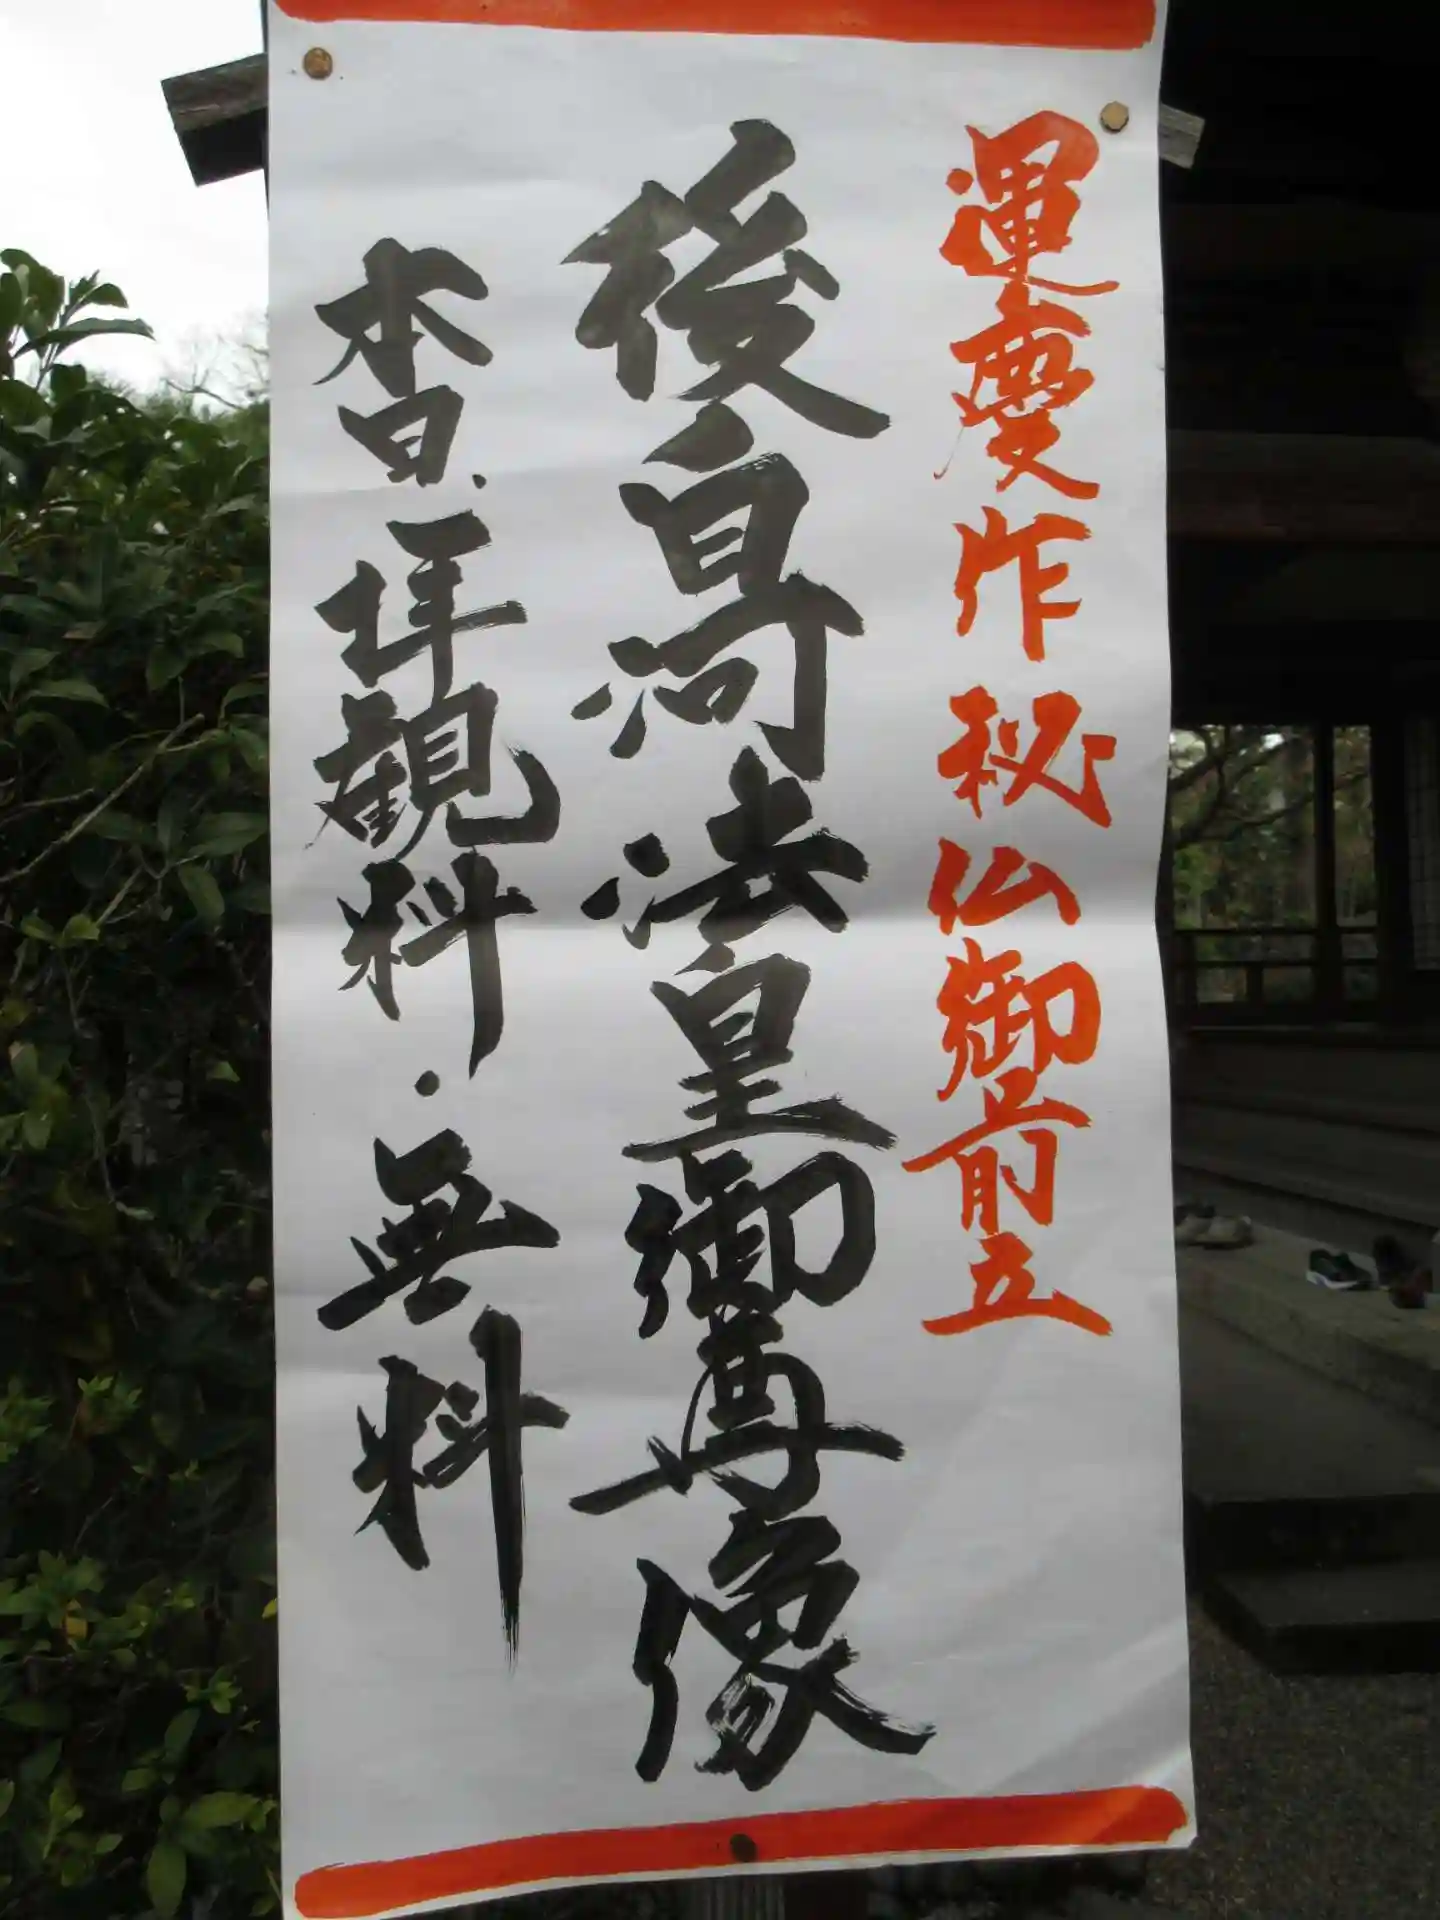 運慶作秘仏御前立
後白河法皇御尊像
本日、拝観料・無料